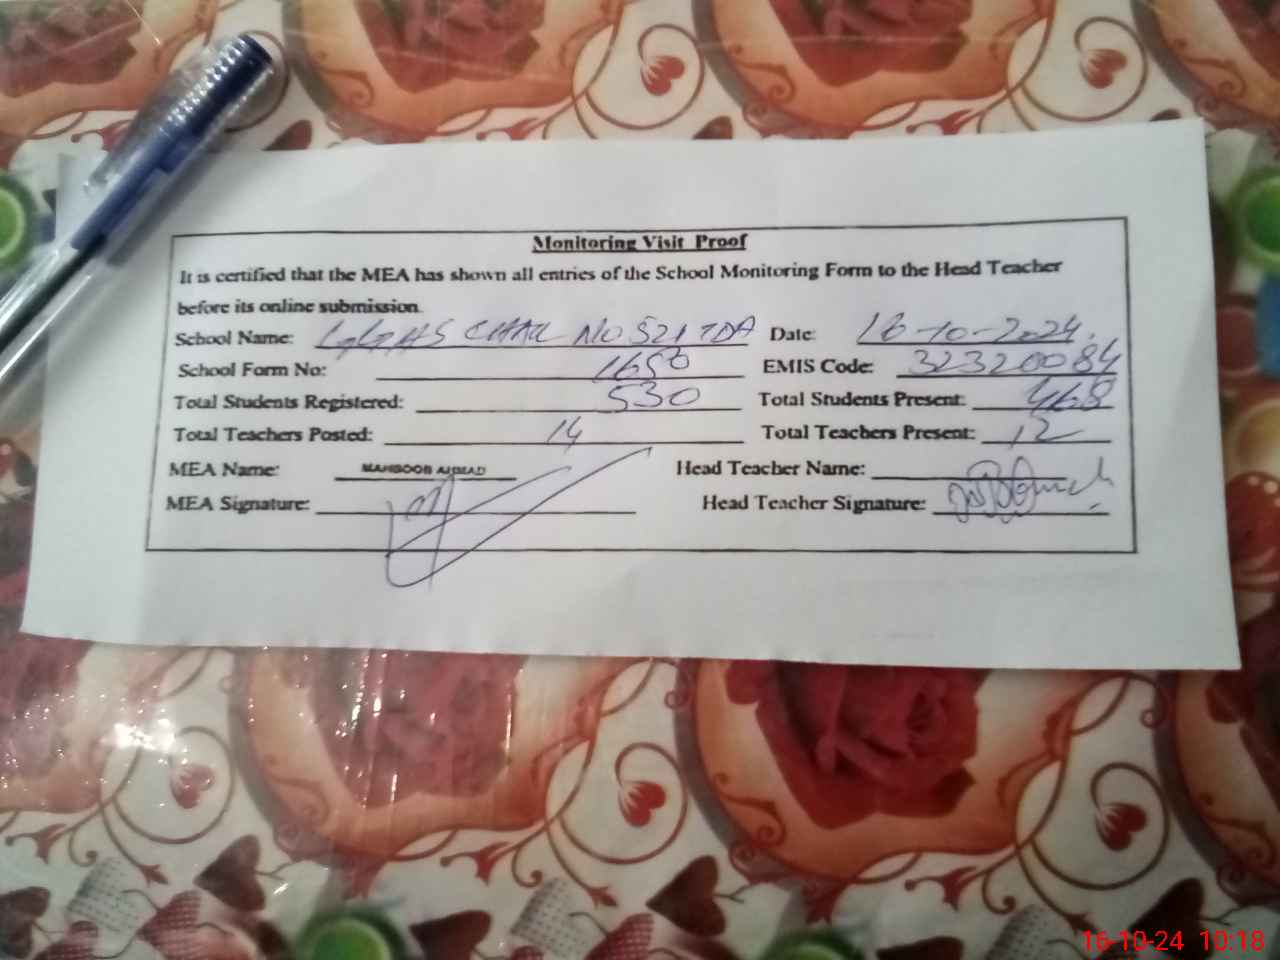 Monitoring Visit Proof
It is certified that the MEA has shown all entries of the School Monitoring Form to the Head Teacher
before its online submission.
School Name: GGHS CHAK NO 521 TDA Date: 16-10-2024.
School Form No: 1650 EMIS Code: 32320084
Total Students Registered: 530 Total Students Present: 468
Total Teachers Posted: 14 Total Teachers Present: 12
MEA Name: MAHBOOB AHMAD Head Teacher Name:
MEA Signature: Head Teacher Signature:
16-10-24 10:18